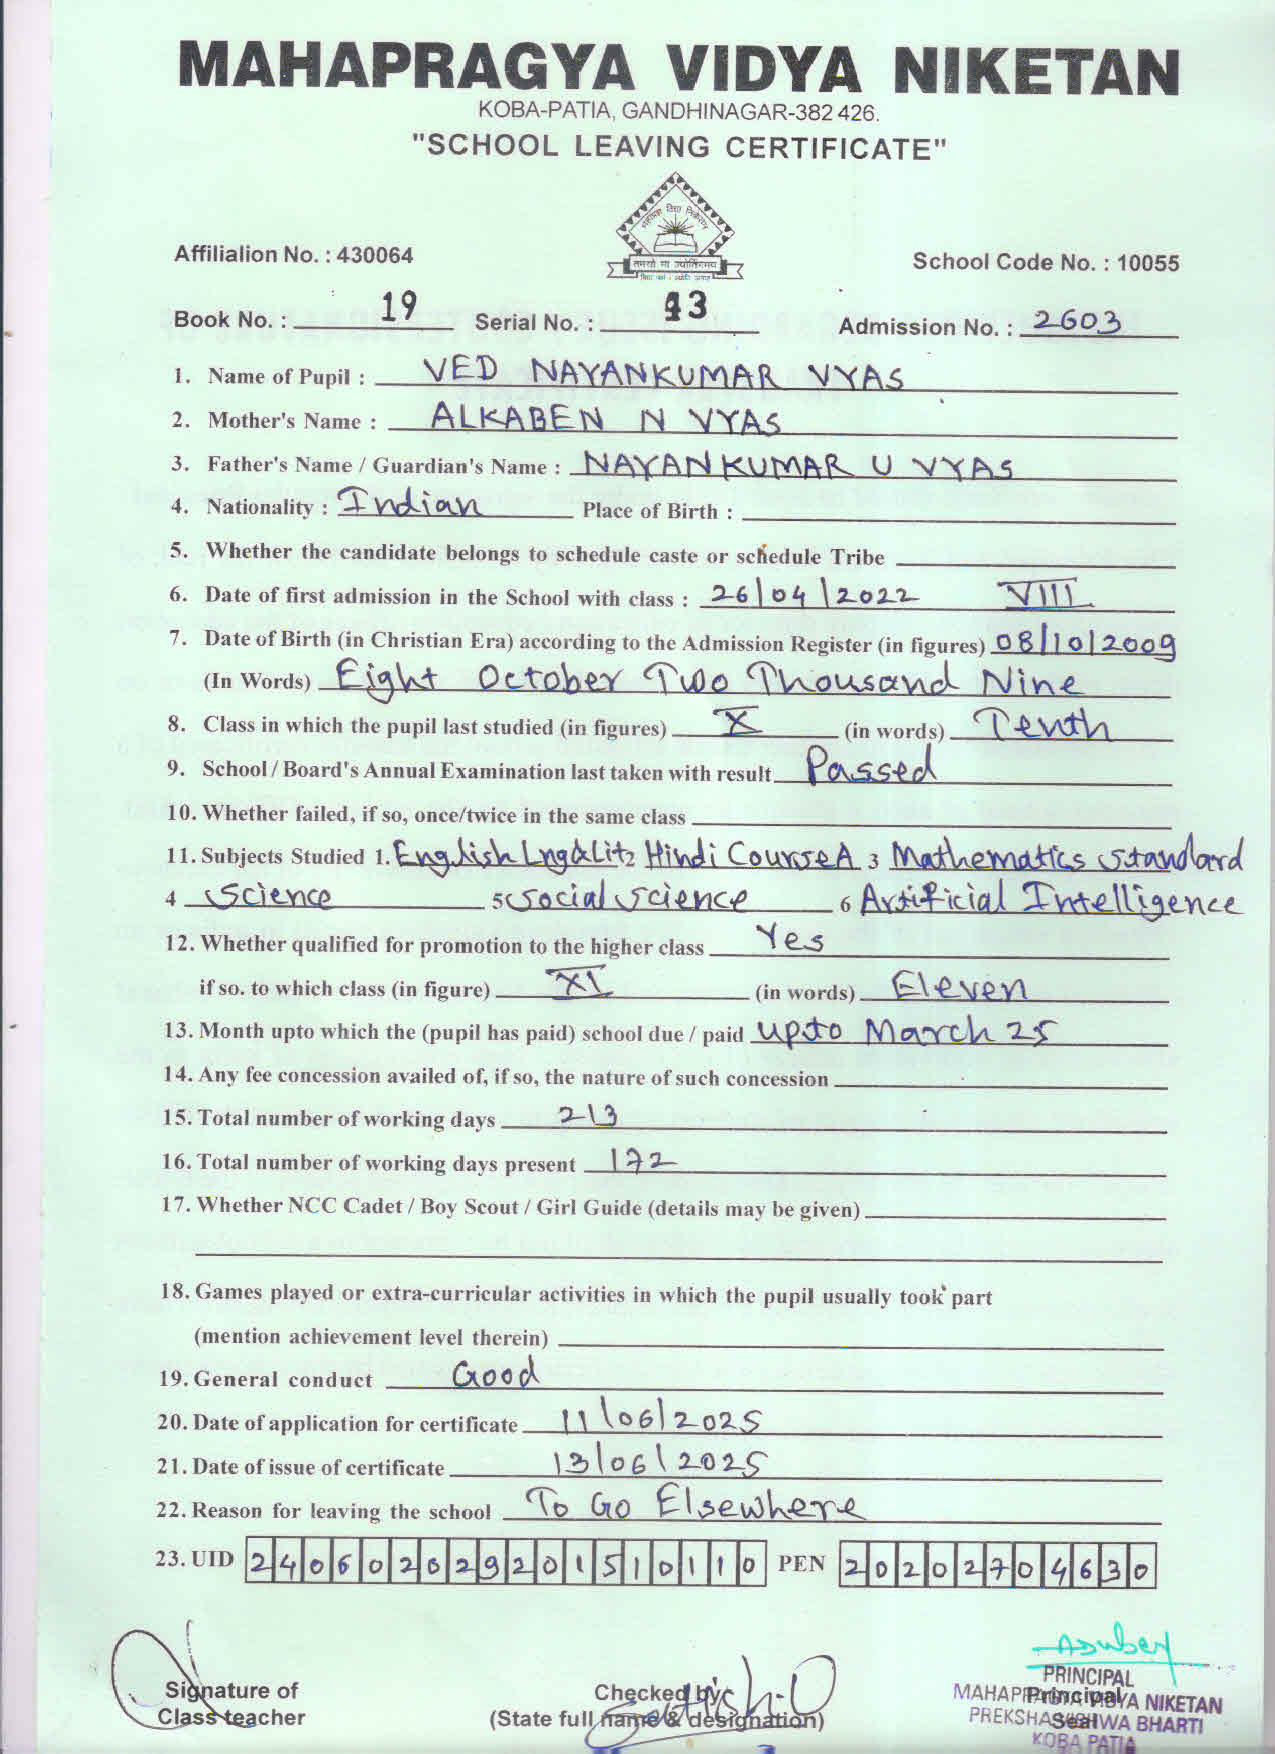 MAHAPRAGYA VIDYA NIKETAN
KOBA-PATIA, GANDHINAGAR-382 426.
"SCHOOL LEAVING CERTIFICATE"
महाप्रज्ञ विद्या निकेतन
तमसो मा ज्योतिर्गमय
Affilialion No. : 430064
School Code No. : 10055
Book No. : 19 Serial No. : 13 Admission No. : 2603
1. Name of Pupil : VED NAYANKUMAR VYAS
2. Mother's Name : ALKABEN N VYAS
3. Father's Name / Guardian's Name : NAYANKUMAR U VYAS
4. Nationality : Indian Place of Birth :
5. Whether the candidate belongs to schedule caste or schedule Tribe
6. Date of first admission in the School with class : 26/04/2022 VIII
7. Date of Birth (in Christian Era) according to the Admission Register (in figures) 08/10/2009
(In Words) Eight October Two Thousand Nine
8. Class in which the pupil last studied (in figures) X (in words) Tenth
9. School / Board's Annual Examination last taken with result Passed
10. Whether failed, if so, once/twice in the same class
11. Subjects Studied 1. English Lng&Lit 2 Hindi Course A 3 Mathematics Standard
4 Science 5 Social Science 6 Artificial Intelligence
12. Whether qualified for promotion to the higher class Yes
if so. to which class (in figure) XI (in words) Eleven
13. Month upto which the (pupil has paid) school due / paid upto March 25
14. Any fee concession availed of, if so, the nature of such concession
15. Total number of working days 213
16. Total number of working days present 172
17. Whether NCC Cadet / Boy Scout / Girl Guide (details may be given)
18. Games played or extra-curricular activities in which the pupil usually took part
(mention achievement level therein)
19. General conduct Good
20. Date of application for certificate 11/06/2025
21. Date of issue of certificate 13/06/2025
22. Reason for leaving the school To Go Elsewhere
23. UID 240602029201510110 PEN 20202704630
Signature of
Class teacher
Checked by
(State full name & designation)
PRINCIPAL
Principal
MAHAPRAGYA VIDYA NIKETAN
PREKSHA VISHWA BHARTI
Seal
KOBA PATIA